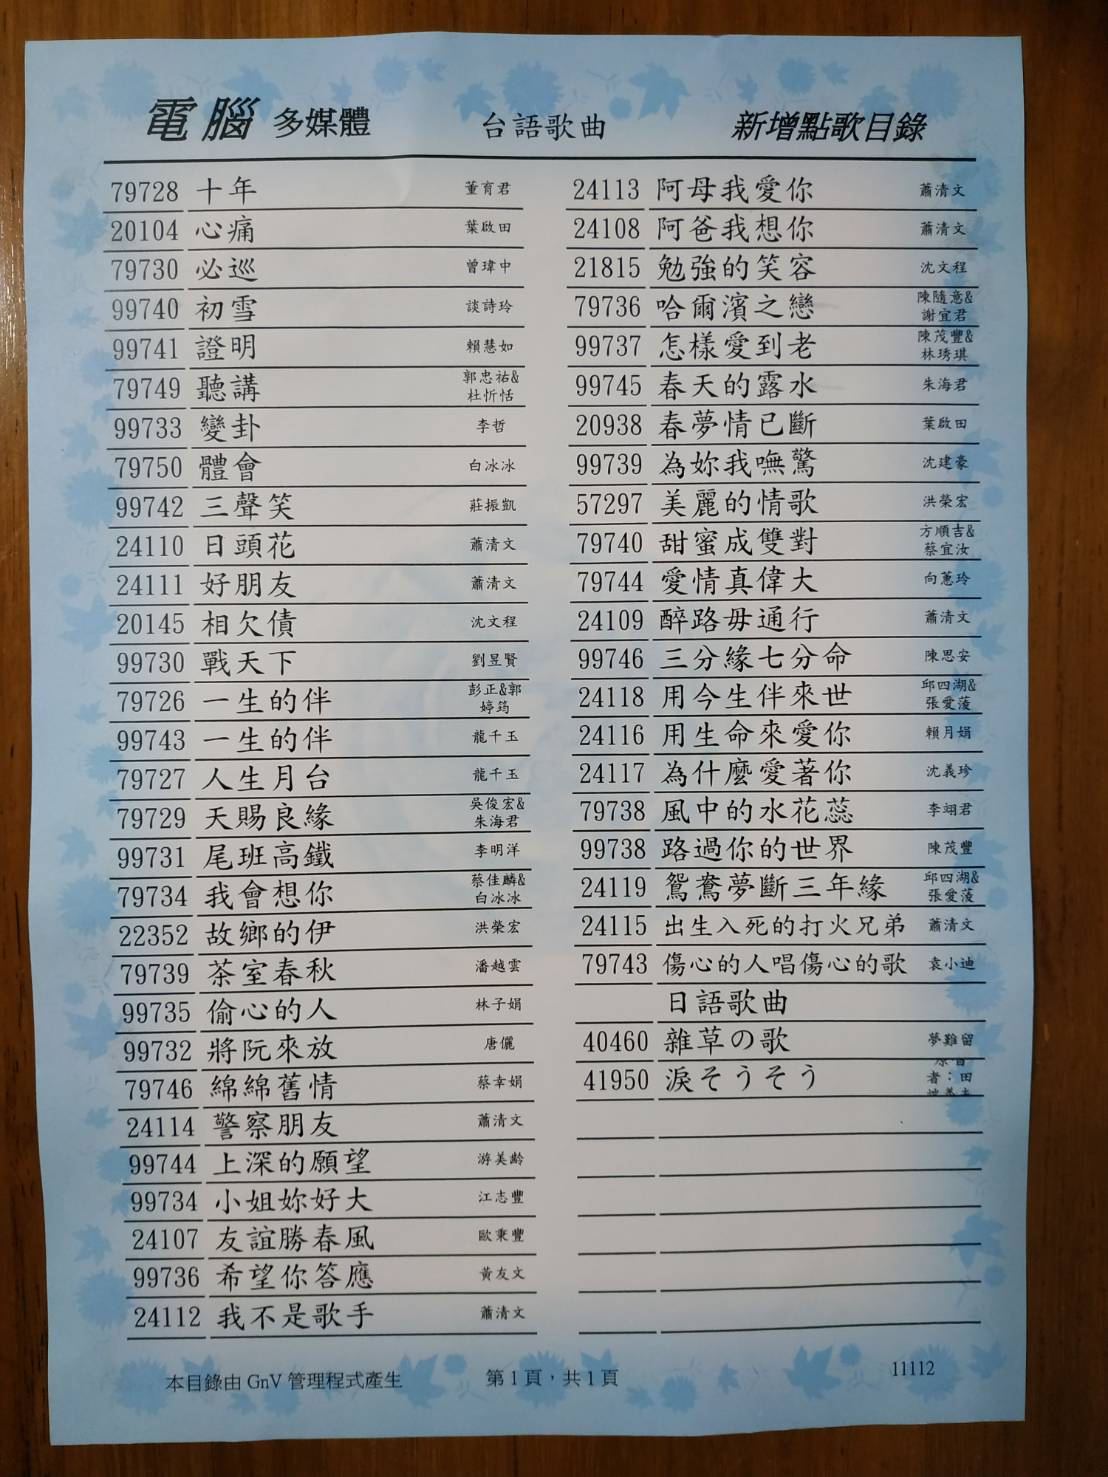 電腦 多媒體 台語歌曲 新增點歌目錄
79728 十年 董育君
20104 心痛 葉啟田
79730 必巡 曾瑋中
99740 初雪 談詩玲
99741 證明 賴慧如
79749 聽講 郭忠祐&
杜忻恬
99733 變卦 李哲
79750 體會 白冰冰
99742 三聲笑 莊振凱
24110 日頭花 蕭清文
24111 好朋友 蕭清文
20145 相欠債 沈文程
99730 戰天下 劉昱賢
79726 一生的伴 彭正&郭
婷筠
99743 一生的伴 龍千玉
79727 人生月台 龍千玉
79729 天賜良緣 吳俊宏&
朱海君
99731 尾班高鐵 李明洋
79734 我會想你 蔡佳麟&
白冰冰
22352 故鄉的伊 洪榮宏
79739 茶室春秋 潘越雲
99735 偷心的人 林子娟
99732 將阮來放 唐儷
79746 綿綿舊情 蔡幸娟
24114 警察朋友 蕭清文
99744 上深的願望 游美齡
99734 小姐妳好大 江志豐
24107 友誼勝春風 歐秉豐
99736 希望你答應 黃友文
24112 我不是歌手 蕭清文
24113 阿母我愛你 蕭清文
24108 阿爸我想你 蕭清文
21815 勉強的笑容 沈文程
79736 哈爾濱之戀 陳隨意&
謝宜君
99737 怎樣愛到老 陳茂豐&
林琇琪
99745 春天的露水 朱海君
20938 春夢情已斷 葉啟田
99739 為妳我嘸驚 沈建豪
57297 美麗的情歌 洪榮宏
79740 甜蜜成雙對 方順吉&
蔡宜汝
79744 愛情真偉大 向蕙玲
24109 醉路毋通行 蕭清文
99746 三分緣七分命 陳思安
24118 用今生伴來世 邱四湖&
張愛蓤
24116 用生命來愛你 賴月娟
24117 為什麼愛著你 沈義珍
79738 風中的水花蕊 李翊君
99738 路過你的世界 陳茂豐
24119 鴛鴦夢斷三年緣 邱四湖&
張愛蓤
24115 出生入死的打火兄弟 蕭清文
79743 傷心的人唱傷心的歌 袁小迪
日語歌曲
40460 雜草の歌 夢難留
41950 淚そうそう
者：田
本目錄由 GnV 管理程式產生 第 1 頁，共 1 頁 11112